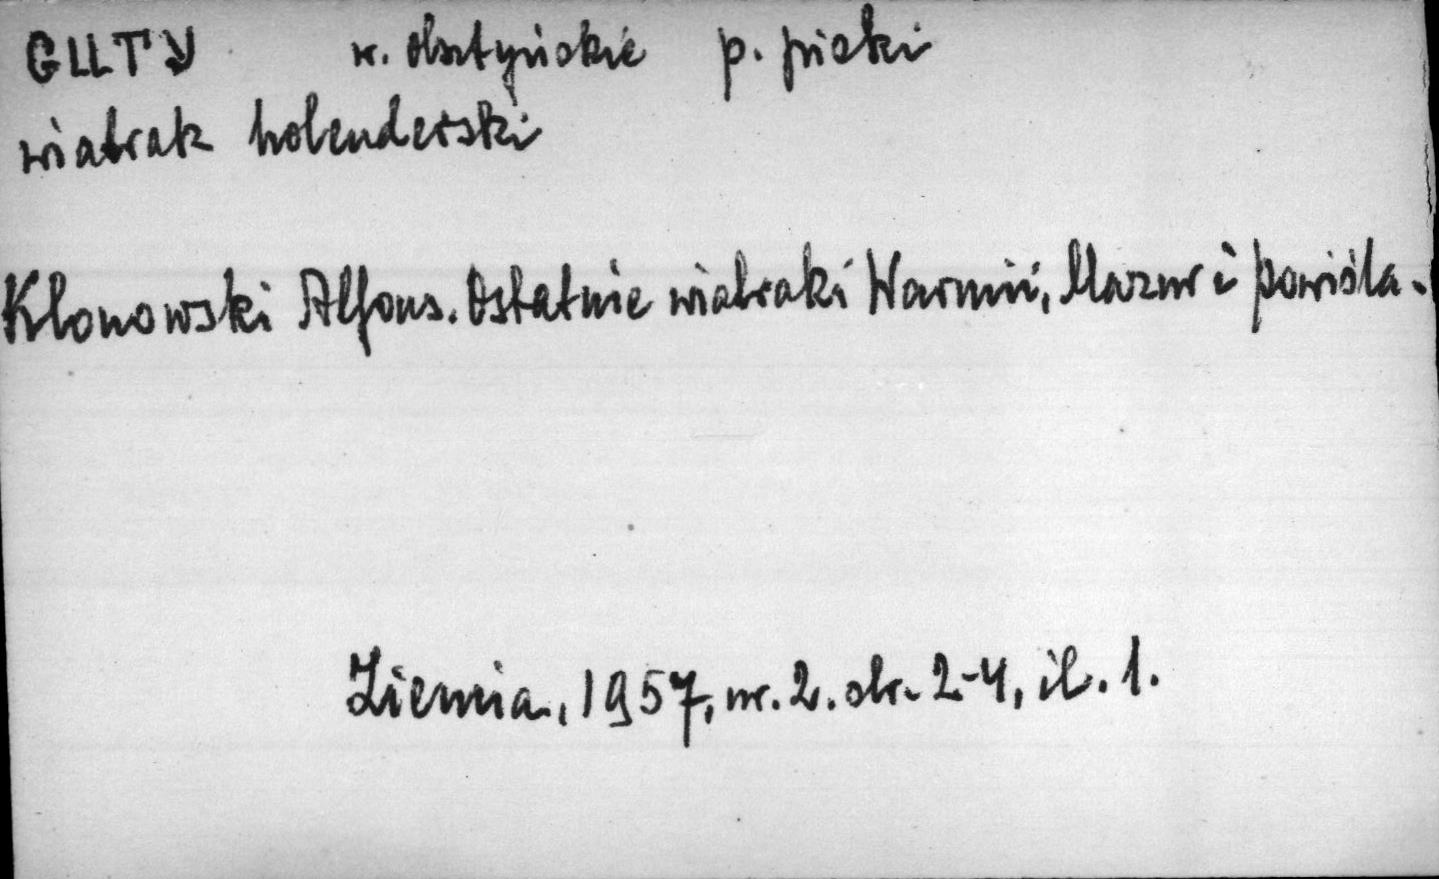 GUTY w. olsztyńskie p. piski
wiatrak holenderski
Klonowski Alfons. Ostatnie wiatraki Warmii, Mazur i Powiśla.
Ziemia, 1957, nr. 2. str. 2-4, il. 1.